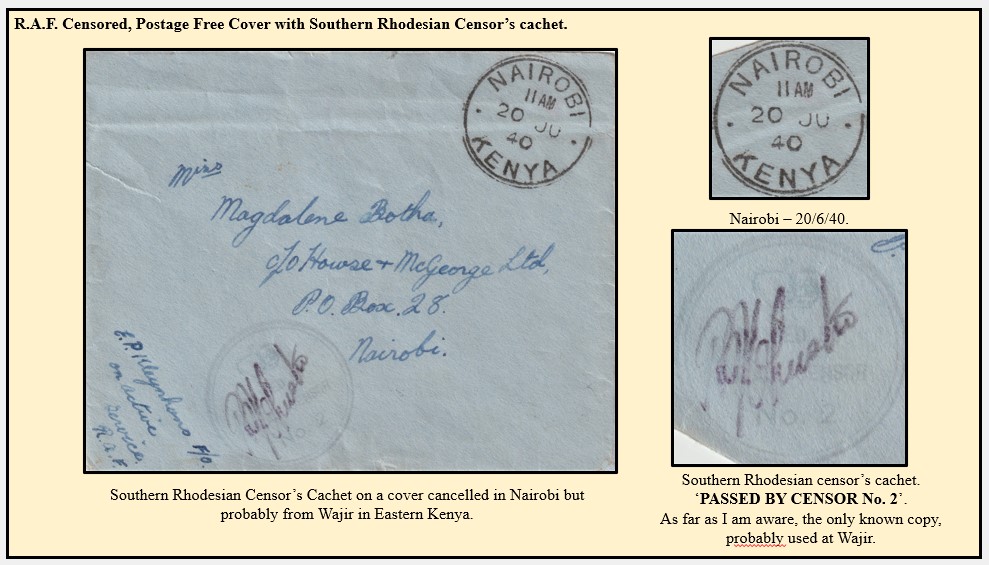 R.A.F. Censored, Postage Free Cover with Southern Rhodesian Censor’s cachet.
NAIROBI
11 AM
20 JU
40
KENYA
Miss
Magdalene Botha,
c/o Howse + McGeorge Ltd,
P.O. Box. 28.
Nairobi.
E.P. Kleynhans F/O.
on active
service.
R.A.F.
No. 2
Southern Rhodesian Censor’s Cachet on a cover cancelled in Nairobi but
probably from Wajir in Eastern Kenya.
NAIROBI
11 AM
20 JU
40
KENYA
Nairobi – 20/6/40.
No. 2
Southern Rhodesian censor’s cachet.
‘PASSED BY CENSOR No. 2’.
As far as I am aware, the only known copy,
probably used at Wajir.